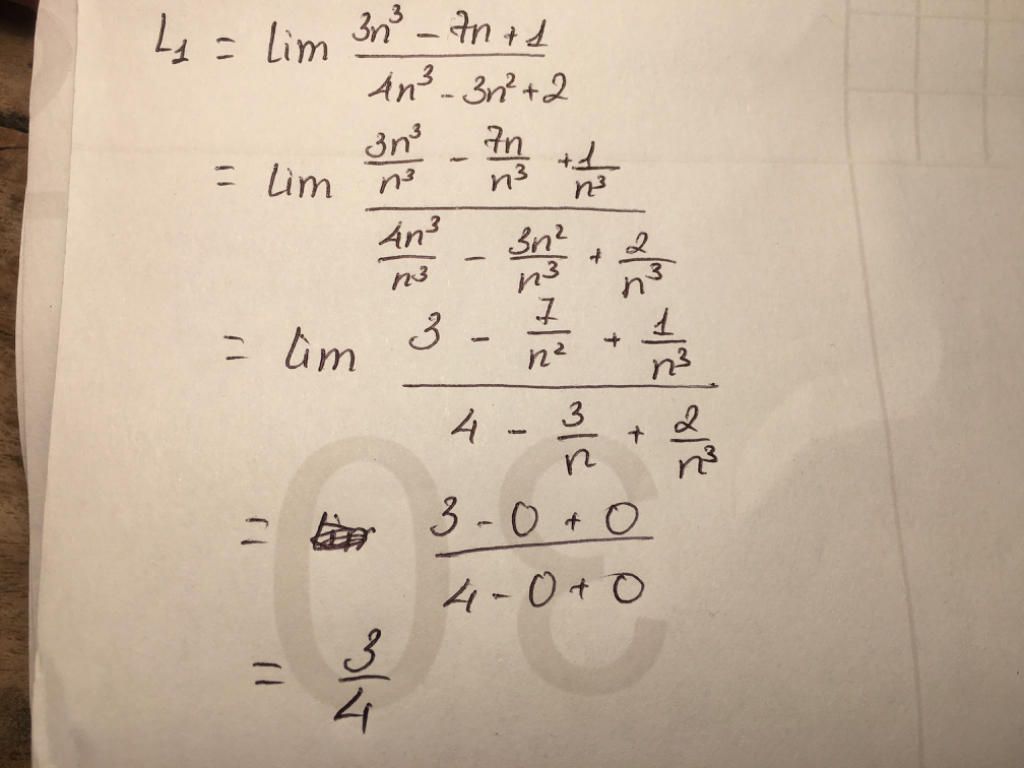 L₁ = lim (3n³ - 7n + 1)/(4n³ - 3n² + 2)
= lim (3n³/n³ - 7n/n³ + 1/n³)/(4n³/n³ - 3n²/n³ + 2/n³)
= lim (3 - 7/n² + 1/n³)/(4 - 3/n + 2/n³)
= (3 - 0 + 0)/(4 - 0 + 0)
= 3/4